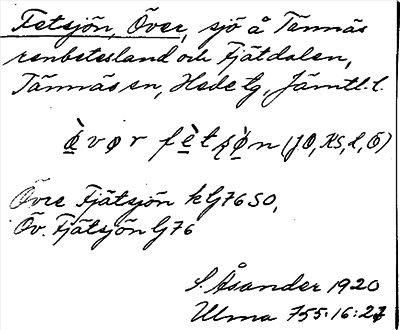 Fetsjön, Övre, sjö å Tännäs
renbetesland och Fjätdalen,
Tännäs sn, Hede tg, Jämtl. l.
(JO, KS, L, Ö)
Övre Fjätsjön kG76SO,
Öv. Fjätsjön G76
S. Åsander 1920
Ulma 755:16:27